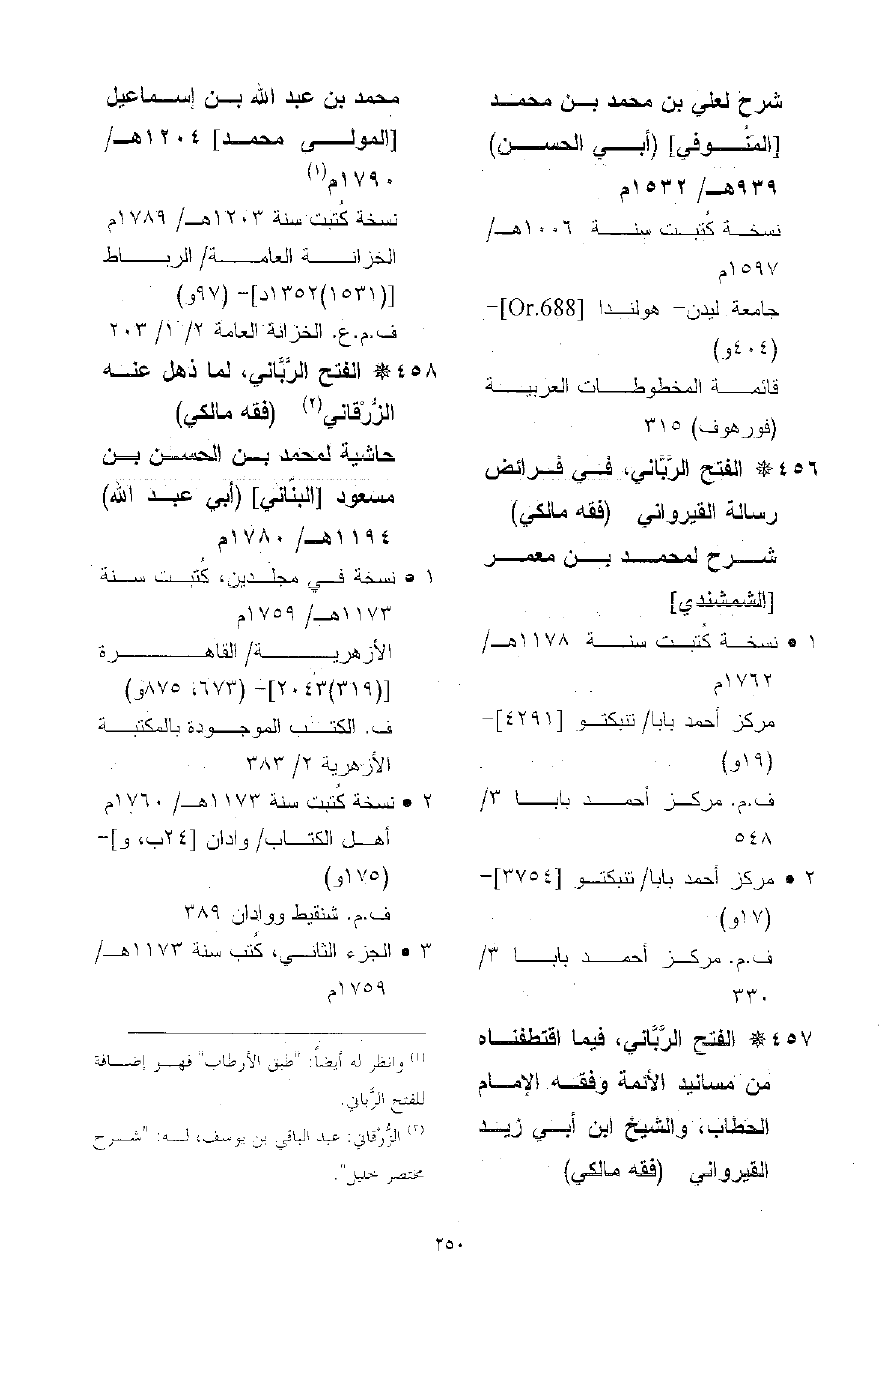 شرح لعلي بن محمد بن محمد
[المنُوفي] (أبي الحسن)
٩٣٩هـ/ ١٥٣٢م
نسخة كُتبت سنة ١٠٠٦هـ/
١٥٩٧م
جامعة ليدن- هولندا [Or.688]-
(٤٠٤و)
قائمة المخطوطات العربية
(فورهوف) ٣١٥
٤٥٦ * الفتح الرَّبَّاني، في فرائض
رسالة القيرواني (فقه مالكي)
شرح لمحمد بن معمر
[الشمشندي]
١ • نسخة كُتبت سنة ١١٧٨هـ/
١٧٦٢م
مركز أحمد بابا/ تنبكتو [٤٢٩١]-
(١٩و)
ف.م. مركز أحمد بابا ٣/
٥٤٨
٢ • مركز أحمد بابا/ تنبكتو [٣٧٥٤]-
(١٧و)
ف.م. مركز أحمد بابا ٣/
٣٣٠
٤٥٧ * الفتح الرَّبَّاني، فيما اقتطفناه
من مسانيد الأئمة وفقه الإمام
الحطاب، والشيخ ابن أبي زيد
القيرواني (فقه مالكي)
محمد بن عبد الله بن إسماعيل
[المولى محمد] ١٢٠٤هـ/
١٧٩٠م(١)
نسخة كُتبت سنة ١٢٠٣هـ/ ١٧٨٩م
الخزانة العامة/ الرباط
[(١٥٣١)١٣٥٢د]- (٩٧و)
ف.م.ع. الخزانة العامة ٢/ ١/ ٢٠٣
٤٥٨ * الفتح الرَّبَّاني، لما ذهل عنه
الزُّرْقاني(٢) (فقه مالكي)
حاشية لمحمد بن الحسن بن
مسعود [البنَّاني] (أبي عبد الله)
١١٩٤هـ/ ١٧٨٠م
١ • نسخة في مجلدين، كُتبت سنة
١١٧٣هـ/ ١٧٥٩م
الأزهرية/ القاهرة
[(٣١٩)٢٠٤٣]- (٦٧٣، ٨٧٥و)
ف. الكتب الموجودة بالمكتبة
الأزهرية ٢/ ٣٨٣
٢ • نسخة كُتبت سنة ١١٧٣هـ/ ١٧٦٠م
أهل الكتاب/ وادان [٢٤ب، و]-
(١٧٥و)
ف.م. شنقيط ووادان ٣٨٩
٣ • الجزء الثاني، كُتب سنة ١١٧٣هـ/
١٧٥٩م
(١) وانظر له أيضاً: "طبق الأرطاب" فهو إضافة
للفتح الرَّباني.
(٢) الزُّرْقاني: عبد الباقي بن يوسف، له: "شرح
مختصر خليل".
٢٥٠